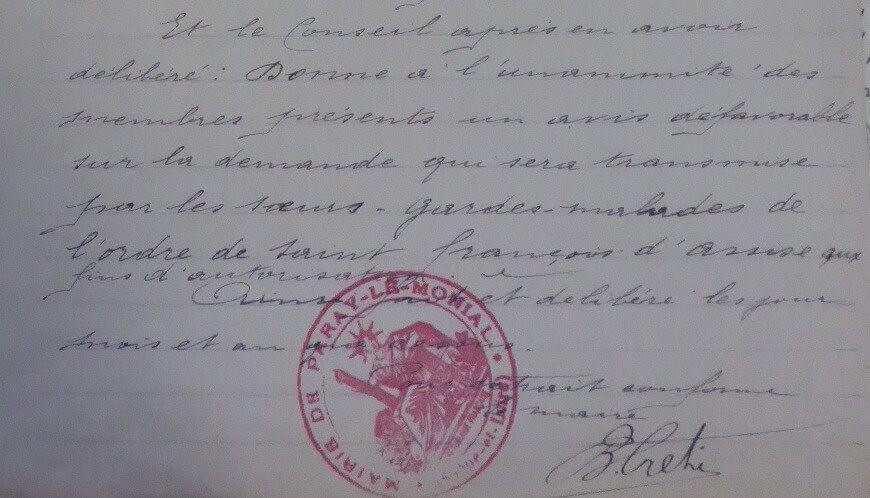 Et le Conseil après en avoir
délibéré : Donne à l'unanimité des
membres présents un avis défavorable
sur la demande qui sera transmise
par les sœurs - gardes-malades de
l'ordre de Saint François d'assise aux
fins d'autorisation.
Ainsi fait et délibéré les jour
mois et an que dessus.
Pour extrait conforme
maire
MAIRIE DE PARAY-LE-MONIAL